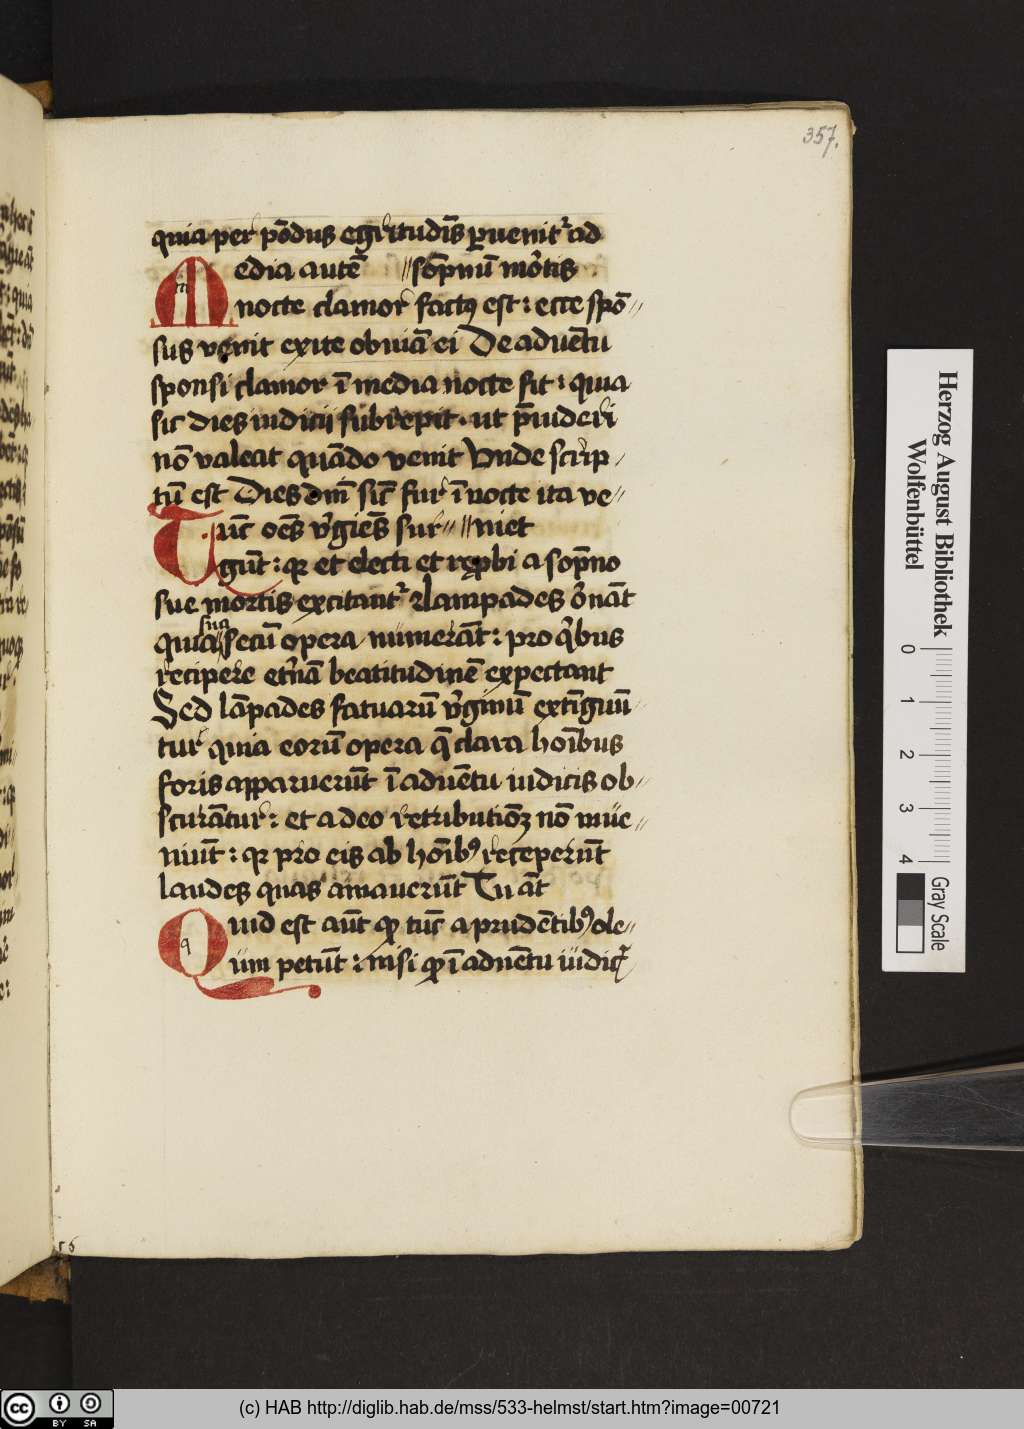 357.
quia per põdus egritudīs ꝑuenit᷑ ad
Media autē //sōpnū mortis
nocte clamor factꝰ est : ecce spō//
sus venit exite obuiā ei De aduētu
sponsi clamor ī media nocte fit : quia
sic dies iudicii subrepit . ut p̄uideri
nō valeat quādo venit Vnde scrip/
tū est Dies dn̄i sic̄ fur ī nocte ita ve//
Tūc oēs v̓gīes sur// //niet
gūt : qꝛ et electi et rep̱bi a sop̄no
sue mortis excitant᷑ ⁊ lampades ornāt
quia sua secū opera numerāt : pro qͥbus
recipere et̓nā beatitudinē expectant
Sed lāpades fatuarū v̓ginū extīguū//
tur quia eorū opera q̄ clara hoībus
foris apparuerūt ī aduētu iudicis ob//
scurātur : et a deo retributiōꝫ nō inue//
niūt : qꝛ pro eis ab hoībꝰ receperūt
laudes quas amauerūt Tu āt
Quid est aūt ꝙ tūc a prudētibꝰ ole//
um petūt : nisi ꝙ ī aduētu iudicꝭ
56
Herzog August Bibliothek
Wolfenbüttel
0 1 2 3 4
Gray Scale
cc BY SA
(c) HAB http://diglib.hab.de/mss/533-helmst/start.htm?image=00721